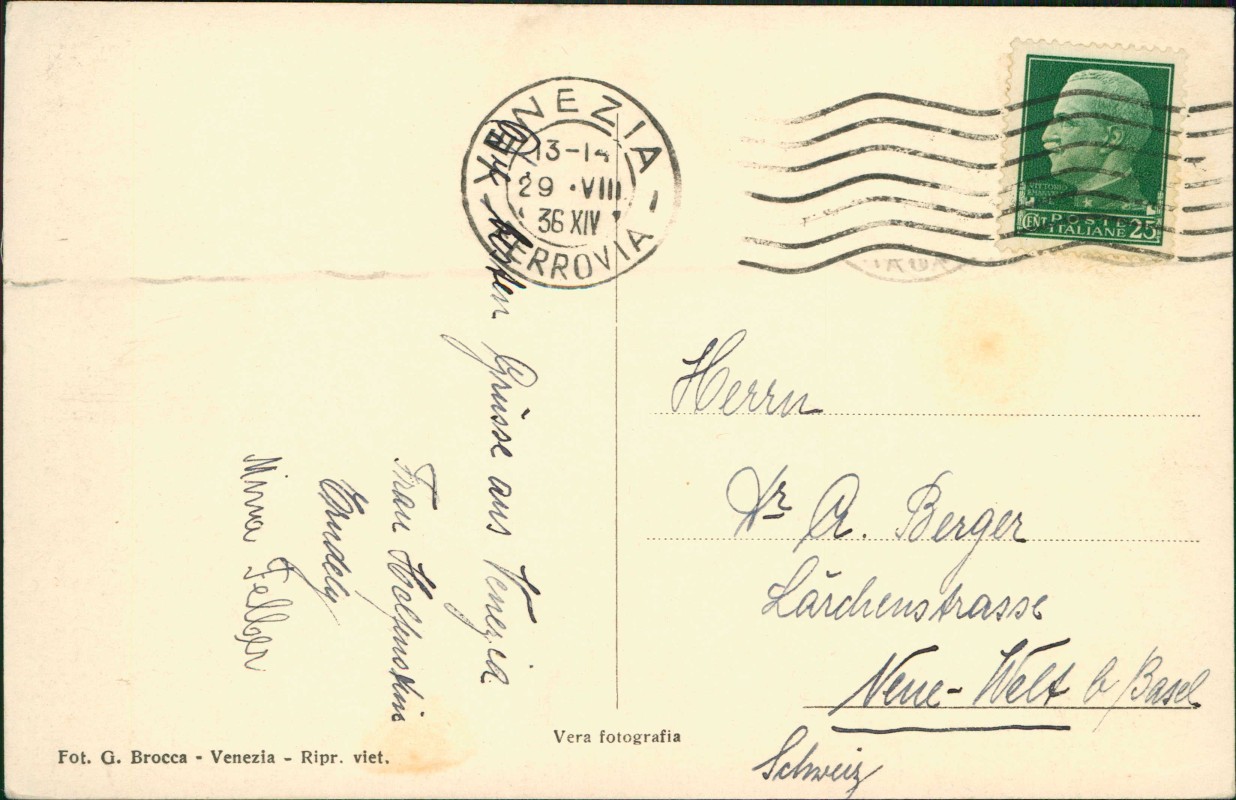 VENEZIA
13-14
29 · VIII
36 XIV
FERROVIA
VITTORIO
CENT
POSTE
ITALIANE 25
Grüsse aus Venezia
Frau
Minna Felber
Herrn
Dr A. Berger
Lärchenstrasse
Neue-Welt b/Basel
Schweiz
Vera fotografia
Fot. G. Brocca - Venezia - Ripr. viet.